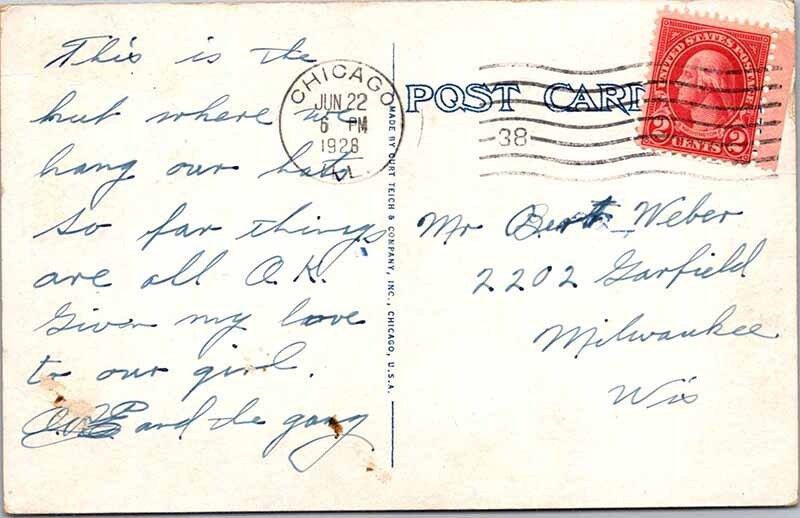 This is the
hut where we
hang our hats
so far things
are all O.K.
Given my love
to our girl.
and the gang
CHICAGO
JUN 22
6 PM
1928
ILL.
38
POST CARD
UNITED STATES POSTAGE
2 CENTS 2
MADE BY CURT TEICH & COMPANY, INC., CHICAGO, U.S.A.
Mr Bert Weber
2202 Garfield
Milwaukee
Wis